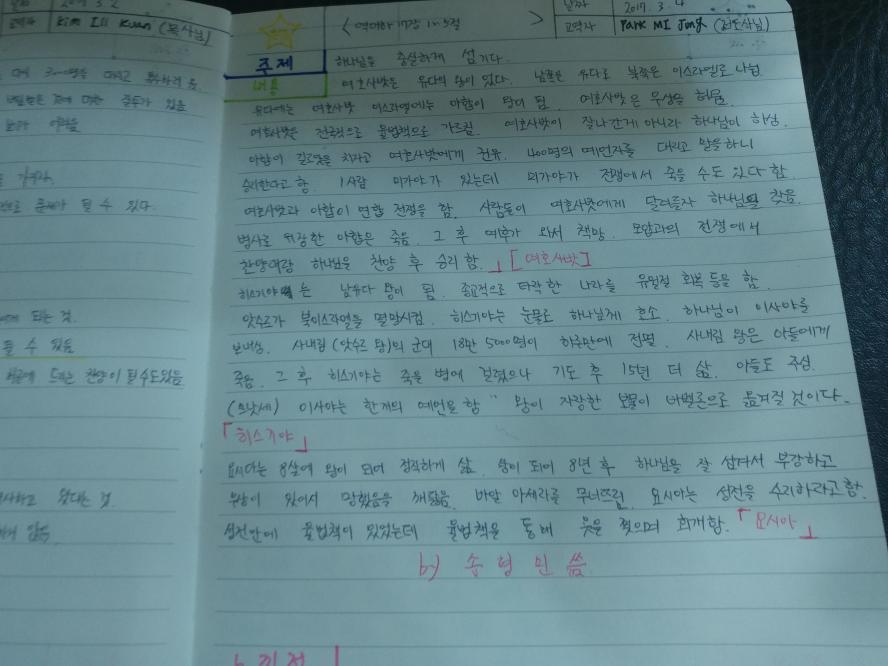 2017. 3. 2
Kim Ill Kwan (목사님)
될 수 있다.
되는 것.
될 수 있음
드리는 찬양이 될 수도 있음
왔다는 것.
<역대하 17장 1~5절>
날짜 2017. 3. 4
교역자 PARK MI JONG (전도사님)
주제 하나님을 충실하게 섬기다.
내용 여호사밧은 유다의 왕이 있다. 남쪽은 유다로 북쪽은 이스라엘로 나뉨
유다에는 여호사밧 이스라엘에는 아합이 왕이 됨. 여호사밧은 우상을 허묾.
여호사밧은 전국적으로 율법책으로 가르침. 여호사밧이 잘나간게 아니라 하나님이 하심.
아합이 길르앗을 치자고 여호사밧에게 권유. 400명의 예언자를 데리고 말을하니
승리한다고 함. 1사람 미가야가 있는데 미가야가 전쟁에서 죽을 수도 있다 함.
여호사밧과 아합이 연합 전쟁을 함. 사람들이 여호사밧에게 달려들자 하나님을 찾음.
병사로 위장한 아합은 죽음. 그 후 예후가 와서 책망. 모압과의 전쟁에서
찬양대랑 하나님을 찬양 후 승리함.」[여호사밧]
히스기야는 남유다 왕이 됨. 종교적으로 타락한 나라를 유월절 회복 등을 함.
앗수르가 북이스라엘을 멸망시킴. 히스기야는 눈물로 하나님께 호소. 하나님이 이사야를
보내심. 사내립(앗수르 왕)의 군대 18만 5000명이 하루만에 전멸. 사내립 왕은 아들에게
죽음. 그 후 히스기야는 죽을 병에 걸렸으나 기도 후 15년 더 삶. 아들도 주심.
(므낫세) 이사야는 한개의 예언을 함 " 왕이 자랑한 보물이 바벨론으로 옮겨질 것이다.
「히스기야」
요시야는 8살에 왕이 되어 정직하게 삶. 왕이 되어 8년 후 하나님을 잘 섬겨서 부강하고
우상이 있어서 망했음을 깨달음. 바알 아세라를 무너뜨림. 요시야는 성전을 수리하라고 함.
성전안에 율법책이 있었는데 율법책을 통해 옷을 찢으며 회개함.「요시야」
by 송형민 씀
느낀점